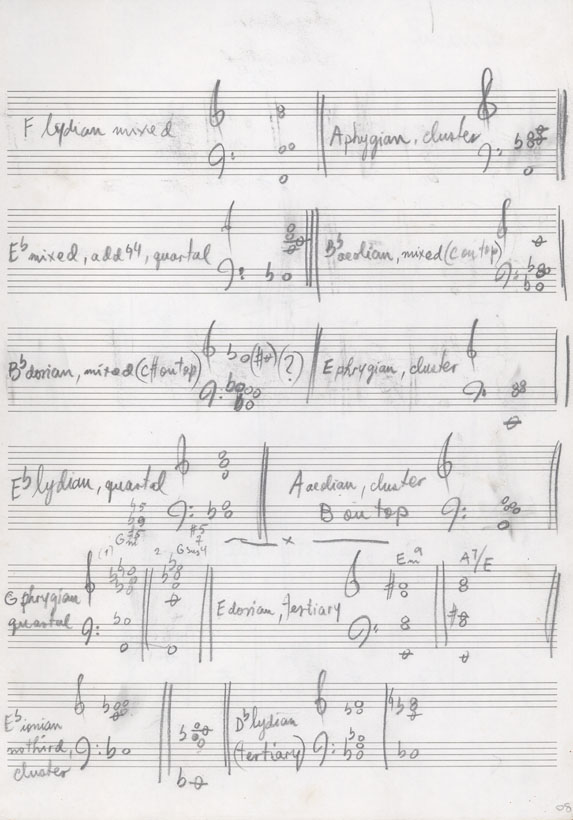 F lydian mixed
A phygian, cluster
E♭ mixed, add ♮4, quartal
B♭ aeolian, mixed (C on top)
B♭ dorian, mixed (C# on top)
(#o) (?)
E phrygian, cluster
E♭ lydian, quartal
A aeolian, cluster
B on top
#5
7
(1)
2. Gsus4
G phrygian
quartal
E dorian, tertiary
Em9
A7/E
E♭ ionian
no third,
cluster
D♭ lydian
(tertiary)